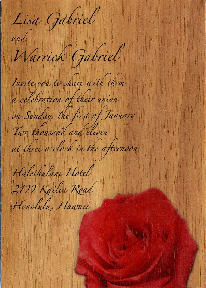 Lisa Gabriel
and
Warrick Gabriel
Invite you to share with them
a celebration of their union
on Sunday, the first of January
Two thousand and eleven
at three o'clock in the afternoon
Halekulani Hotel
2199 Kailiu Road
Honolulu, Hawaii